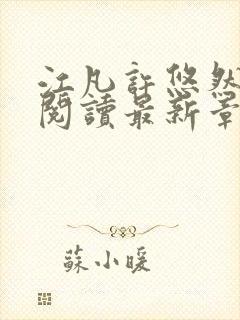 江凡許悠然
閱讀最新章
蘇小暖